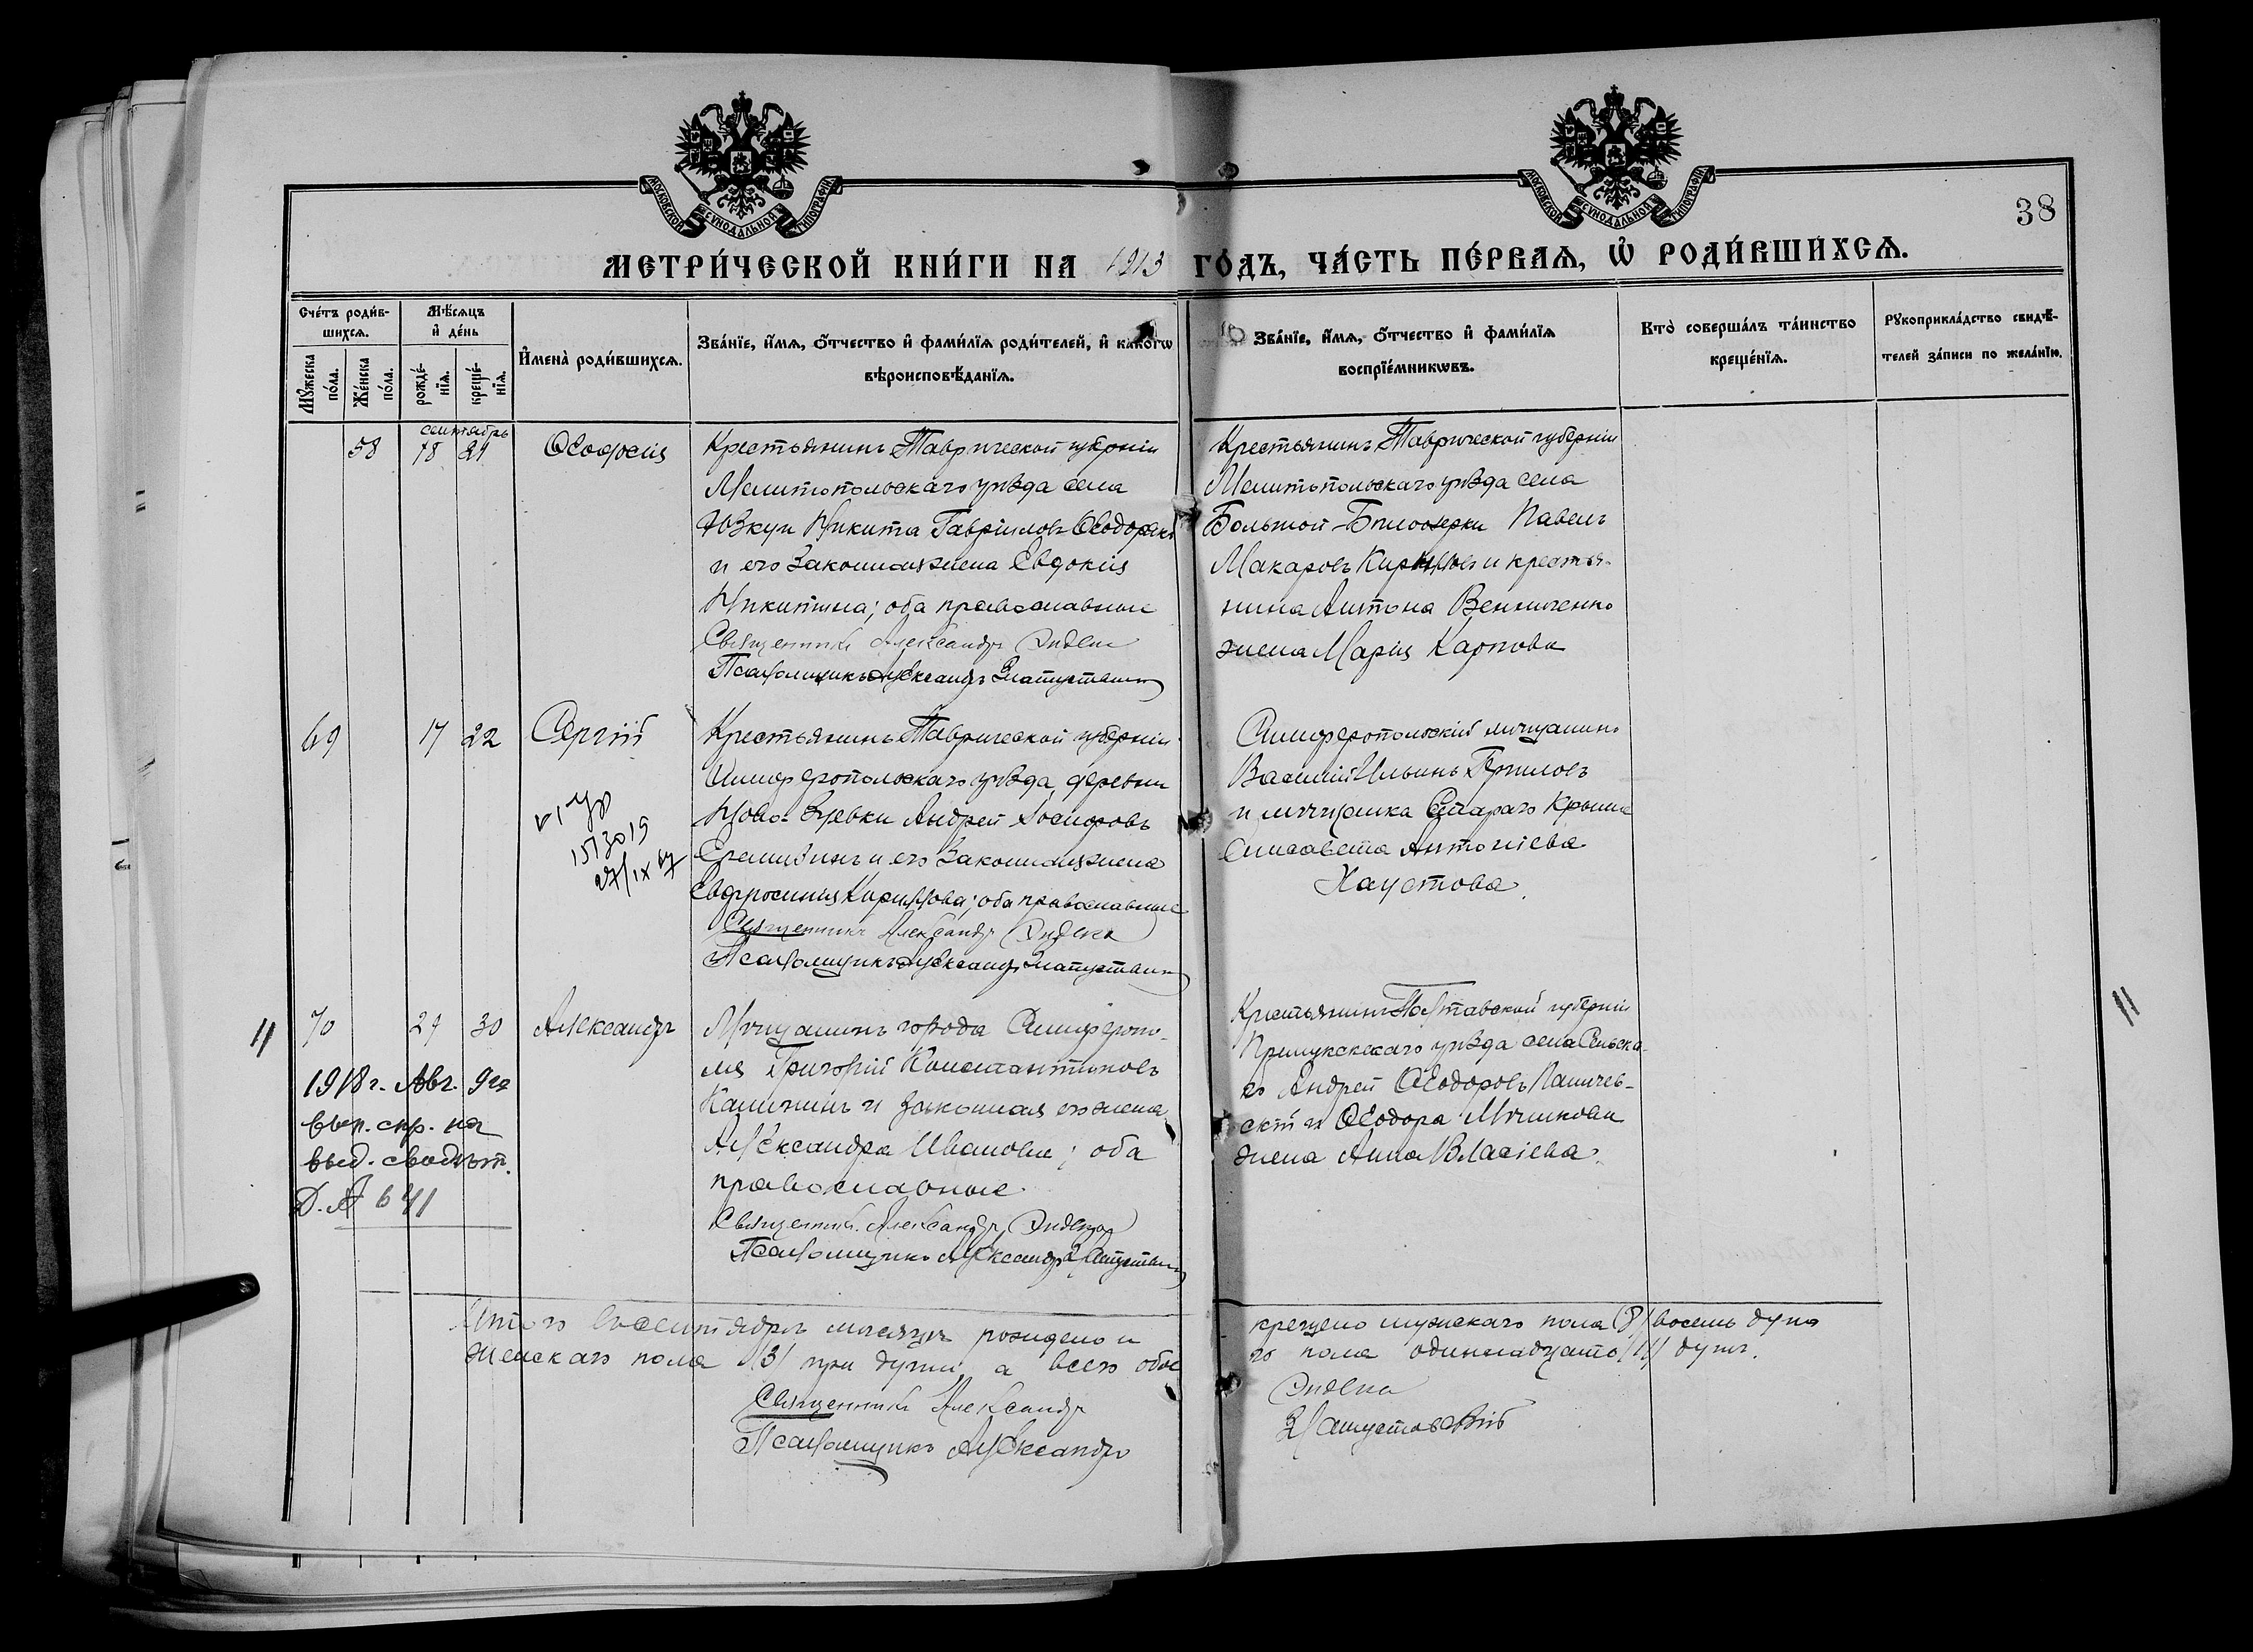 МОСКОВСКОЙ СУНОДАЛЬНОЙ ТИПОГРАФІИ
МОСКОВСКОЙ СУНОДАЛЬНОЙ ТИПОГРАФІИ
38
МЕТРИ́ЧЕСКОЙ КНИ́ГИ НА 1913 ГО́ДЪ, ЧА́СТЬ ПЕ́РВАЯ, Ѡ҆ РОДИ́ВШИХСЯ.
Сче́тъ роди́в-
шихся.
Мѣ́сяцъ
и҆ де́нь
Мꙋ́жеска по́ла.
Же́нска по́ла.
рожде́-
нїя.
креще́-
нїя.
И҆мена̀ роди́вшихся.
Зва́нїе, и҆́мя, ѻ҆́тчество и҆ фами́лїя роди́телей, и҆ како́гѡ
вѣроисповѣ́данїя.
Зва́нїе, и҆́мя, ѻ҆́тчество и҆ фами́лїя
воспрїе́мникѡвъ.
Кто̀ соверша́лъ та́инство
креще́нїя.
Рꙋкоприкла́дство свидѣ́-
телей за́писи по жела́нїю.
сентябрь
58 18 21 Ѳеодосія
Крестьянинъ Таврической губерніи
Мелитопольскаго уѣзда села
Юзкуи Никита Гавріиловъ
и его законная жена Евдокія
Никитина; оба православные
Священникъ Александръ Энденъ
Псаломщикъ Александръ
Крестьянинъ Таврической губерніи
Мелитопольскаго уѣзда села
Большой-Бѣлозерки Павелъ
Макаровъ Кирилловъ и крестья-
нина Антона
жена Марія Карпова
69 17 22 Сергій
Крестьянинъ Таврической губерніи
Симферопольскаго уѣзда, деревни
Ново-Зуевки Андрей Іосифовъ
и его законная жена
Евфросинія Кириллова; оба православные
Священникъ Александръ Энденъ
Псаломщикъ Александръ
1513015
27/IX 67
Симферопольскій мѣщанинъ
Василій Ильинъ
и мѣщанка Стараго Крыма
Елисавета Антоніева
Хаустова.
70 27 30 Александръ
Мѣщанинъ города Симферопо-
ля Григорій Константиновъ
Калининъ и законная его жена
Александра Иванова; оба
православные
Священникъ Александръ Энденъ
Псаломщикъ Александръ
1918 г. Авг. 9 го
вып. спр. на
выд. свидѣт.
Д. № 641
Крестьянинъ Полтавской губерніи
Прилукскаго уѣзда села
Андрей Ѳеодоровъ
скій и Ѳеодора Мѣшкова
жена Анна Власіева.
Итого въ сентябрѣ мѣсяцѣ рождено и крещено мужскаго пола (8) восемь душъ
женскаго пола (3) три души, а всего обоего пола одиннадцать (11) душъ.
Священникъ Александръ Энденъ
Псаломщикъ Александръ